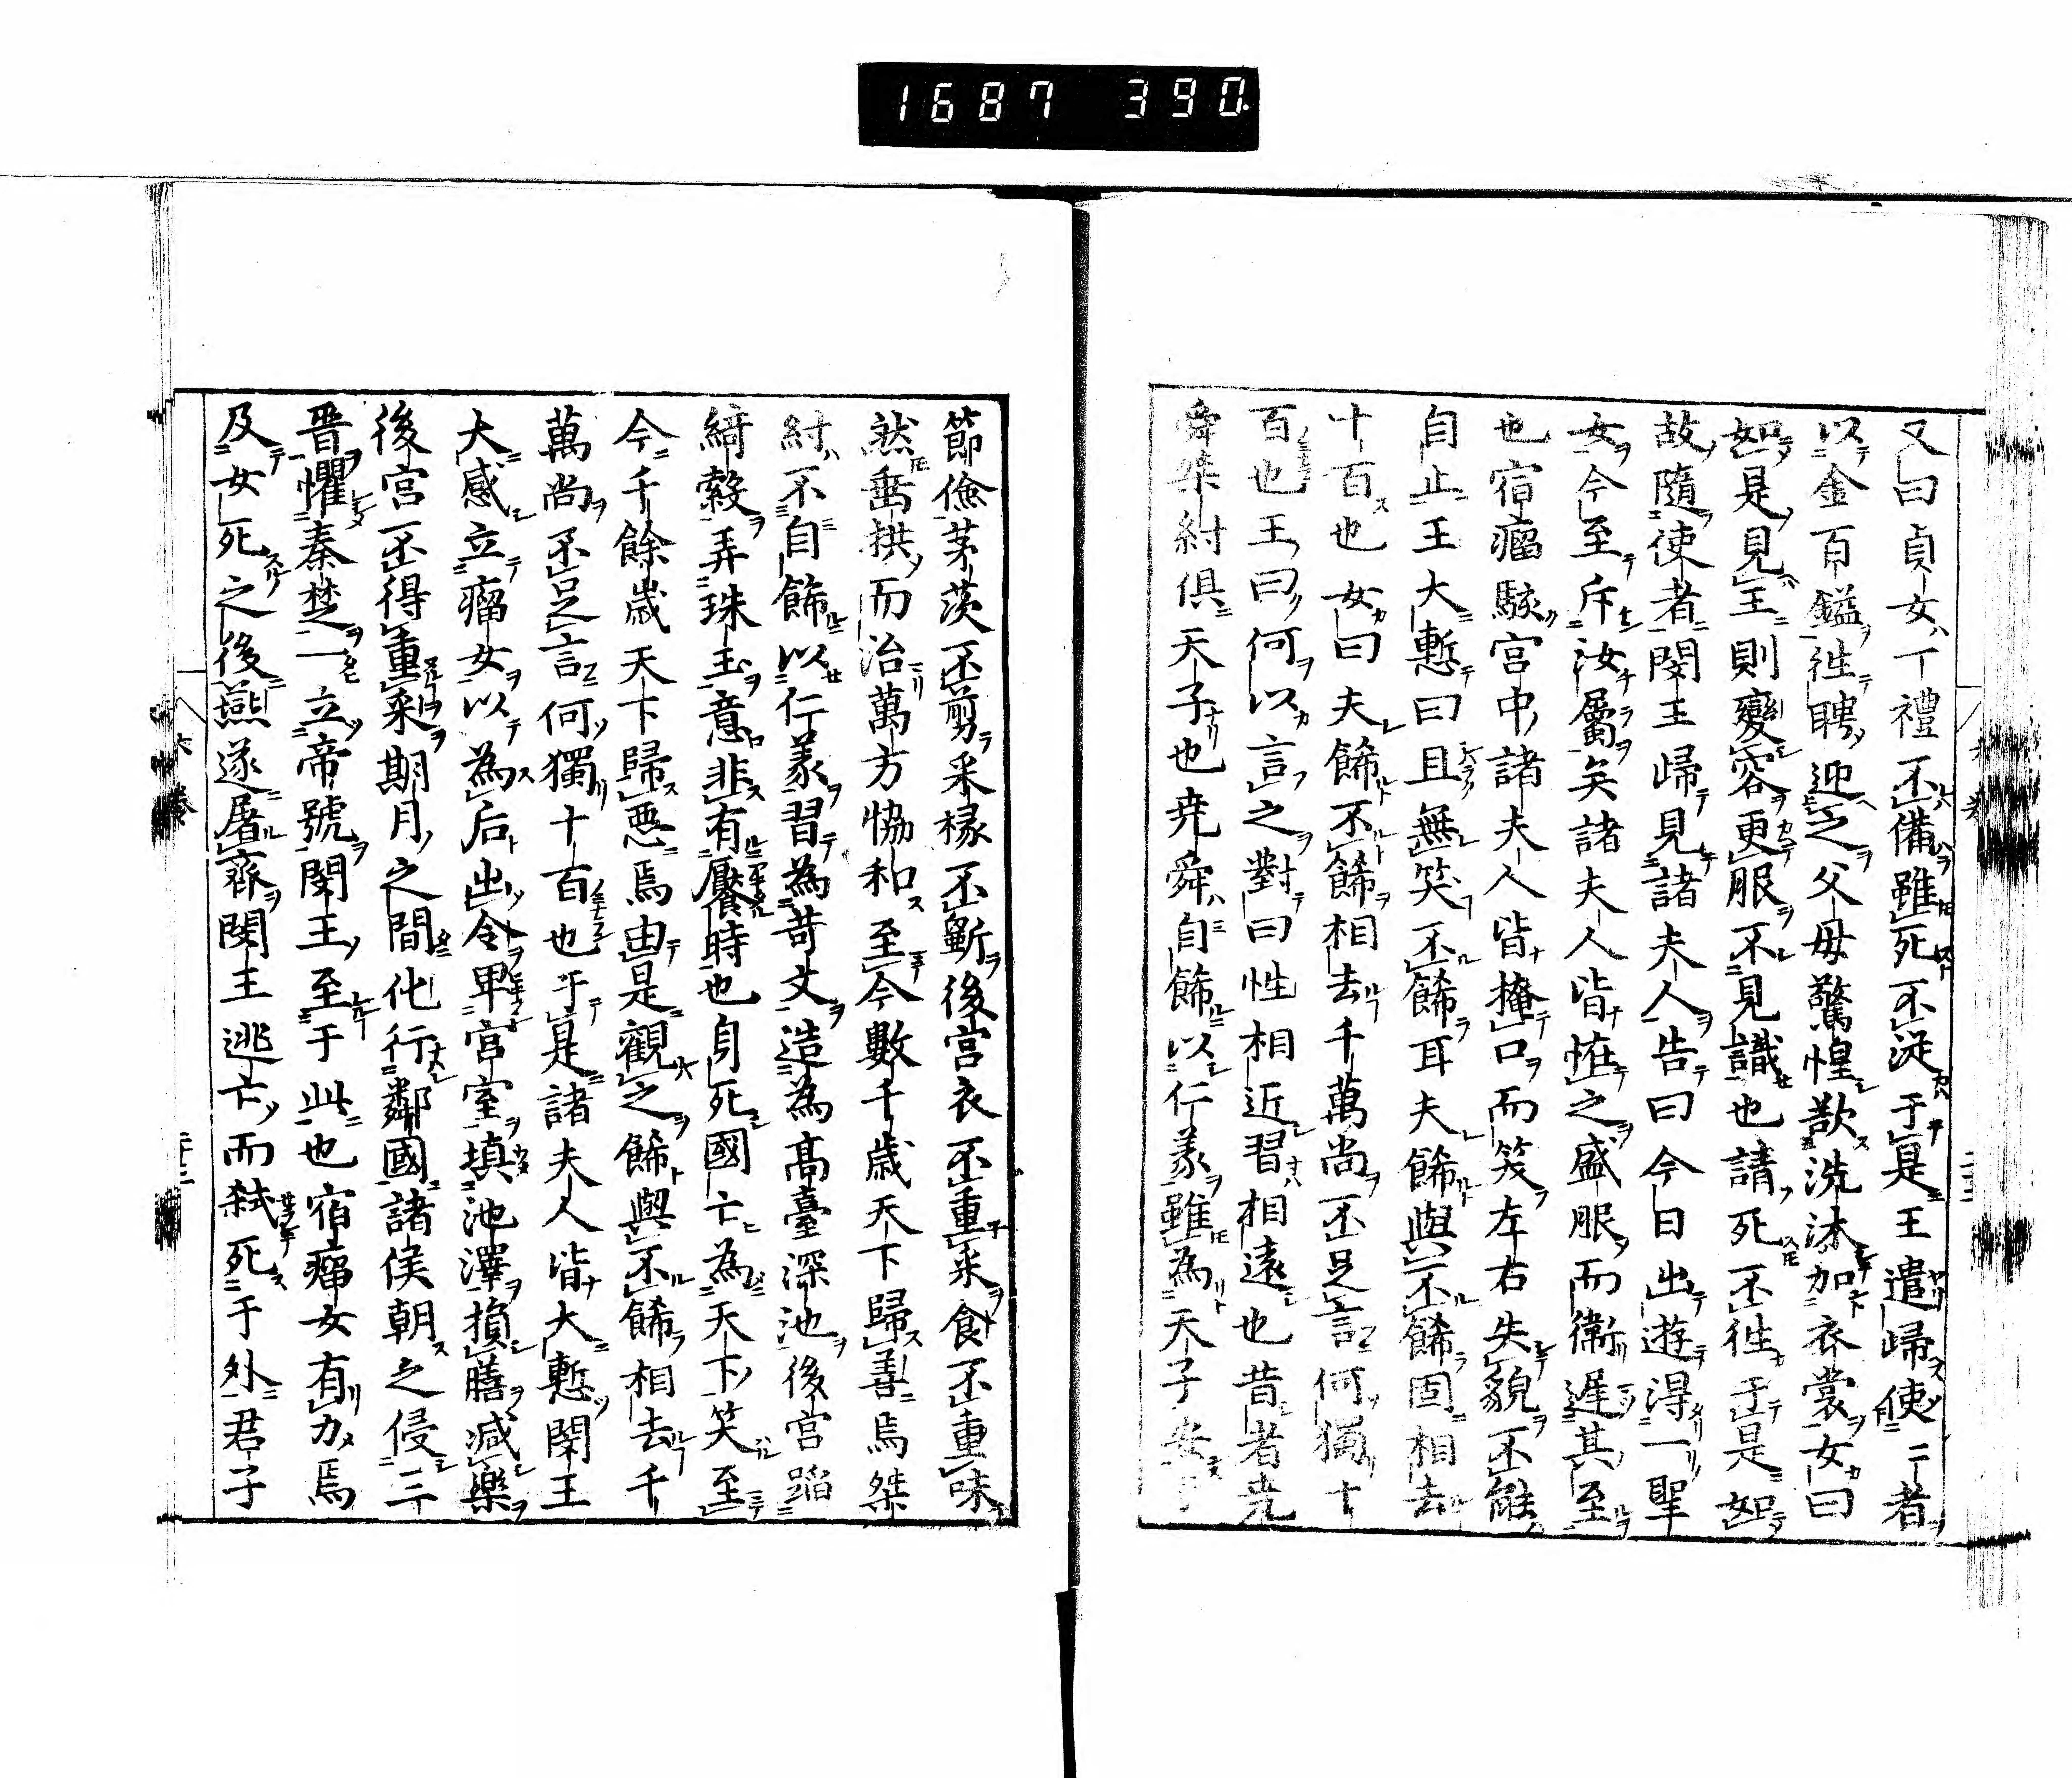 1687 390
又曰貞女一禮不備雖死不從于是王遣歸使二者
以金百鎰往聘迎之父母驚惶欲洗沐加衣裳女曰
如是見王則變容更服不見識也請死不往于是如
故隨使者閔王歸見諸夫人告曰今日出遊得一聖
女今至斥汝屬矣諸夫人皆恠之盛服而衛遲其至
也宿瘤駭宮中諸夫人皆掩口而笑左右失貌不能
自止王大慙曰且無笑不餙耳夫餙與不餙固相去
十百也女曰夫餙不餙相去千萬尚不足言何獨十
百也王曰何以言之對曰性相近習相遠也昔者尭
舜桀紂俱天子也尭舜自餙以仁義雖為天子安于
節儉茅茨不剪采椽不斵後宮衣不重采食不重味
然垂拱而治萬方恊和至今數千歳天下歸善焉桀
紂不自餙以仁義習為苛文造為髙臺深池後宮蹈
綺縠弄珠玉意非有饜時也身死國亡為天下笑至
今千餘歳天下歸惡焉由是觀之餙與不餙相去千
萬尚不足言何獨十百也于是諸夫人皆大慙閔王
大感立瘤女以為后出令卑宮室填池澤損膳减樂
後宮不得重采期月之間化行鄰國諸侯朝之侵三
晋懼秦楚一立帝號閔王至于此也宿瘤女有力焉
及女死之後燕遂屠齊閔王逃亡而弑死于外君子